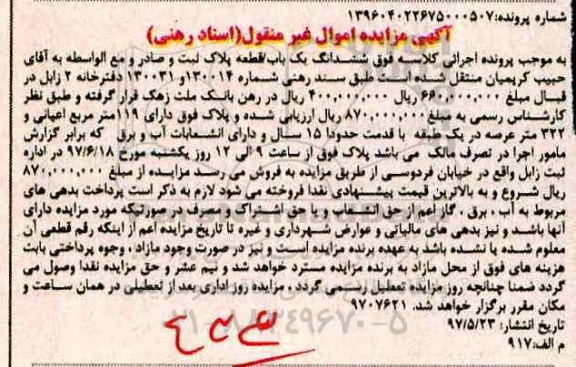 شماره پرونده:۱۳۹۶۰۴۰۲۲۶۷۵۰۰۰۵۰۷
آگهی مزایده اموال غیر منقول(اسناد رهنی)
به موجب پرونده اجرائی کلاسه فوق ششدانگ یک باب/قطعه پلاک ثبت و صادر و مع الواسطه به آقای
حبیب کریمیان منتقل شده است طبق سند رهنی شماره ۱۳۰۰۱۴و ۱۳۰۰۳۱ دفترخانه ۲ زابل در
قبال مبلغ ۶۶۰,۰۰۰,۰۰۰ ریال ۴۰۰,۰۰۰,۰۰۰ ریال در رهن بانک ملت زهک قرار گرفته و طبق نظر
کارشناس رسمی به مبلغ ۸۷۰,۰۰۰,۰۰۰ ریال ارزیابی شده و پلاک فوق دارای ۱۱۹متر مربع اعیانی و
۳۲۲ متر عرصه در یک طبقه با قدمت حدودا ۱۵ سال و دارای انشعابات آب و برق که برابر گزارش
مامور اجرا در تصرف مالک می باشد پلاک فوق از ساعت ۹ الی ۱۲ روز یکشنبه مورخ ۹۷/۶/۱۸ در اداره
ثبت زابل واقع در خیابان فردوسی از طریق مزایده به فروش می رسد مزایده از مبلغ ۸۷۰,۰۰۰,۰۰۰
ریال شروع و به بالاترین قیمت پیشنهادی نقدا فروخته می شود لازم به ذکر است پرداخت بدهی های
مربوط به آب ، برق ، گاز اعم از حق انشعاب و یا حق اشتراک و مصرف در صورتیکه مورد مزایده دارای
آنها باشد و نیز بدهی های مالیاتی و عوارض شهرداری و غیره تا تاریخ مزایده اعم از اینکه رقم قطعی آن
معلوم شده یا نشده باشد به عهده برنده مزایده است و نیز در صورت وجود مازاد ، وجوه پرداختی بابت
هزینه های فوق از محل مازاد به برنده مزایده مسترد خواهد شد و نیم عشر و حق مزایده نقدا وصول می
گردد ضمنا چنانچه روز مزایده تعطیل رسمی گردد ، مزایده روز اداری بعد از تعطیلی در همان ساعت و
مکان مقرر برگزار خواهد شد. ۹۷۰۷۶۲۱
تاریخ انتشار: ۹۷/۵/۲۳
م الف:۹۱۷
۰۲۱-۸۸۳۴۹۶۷۰-۵